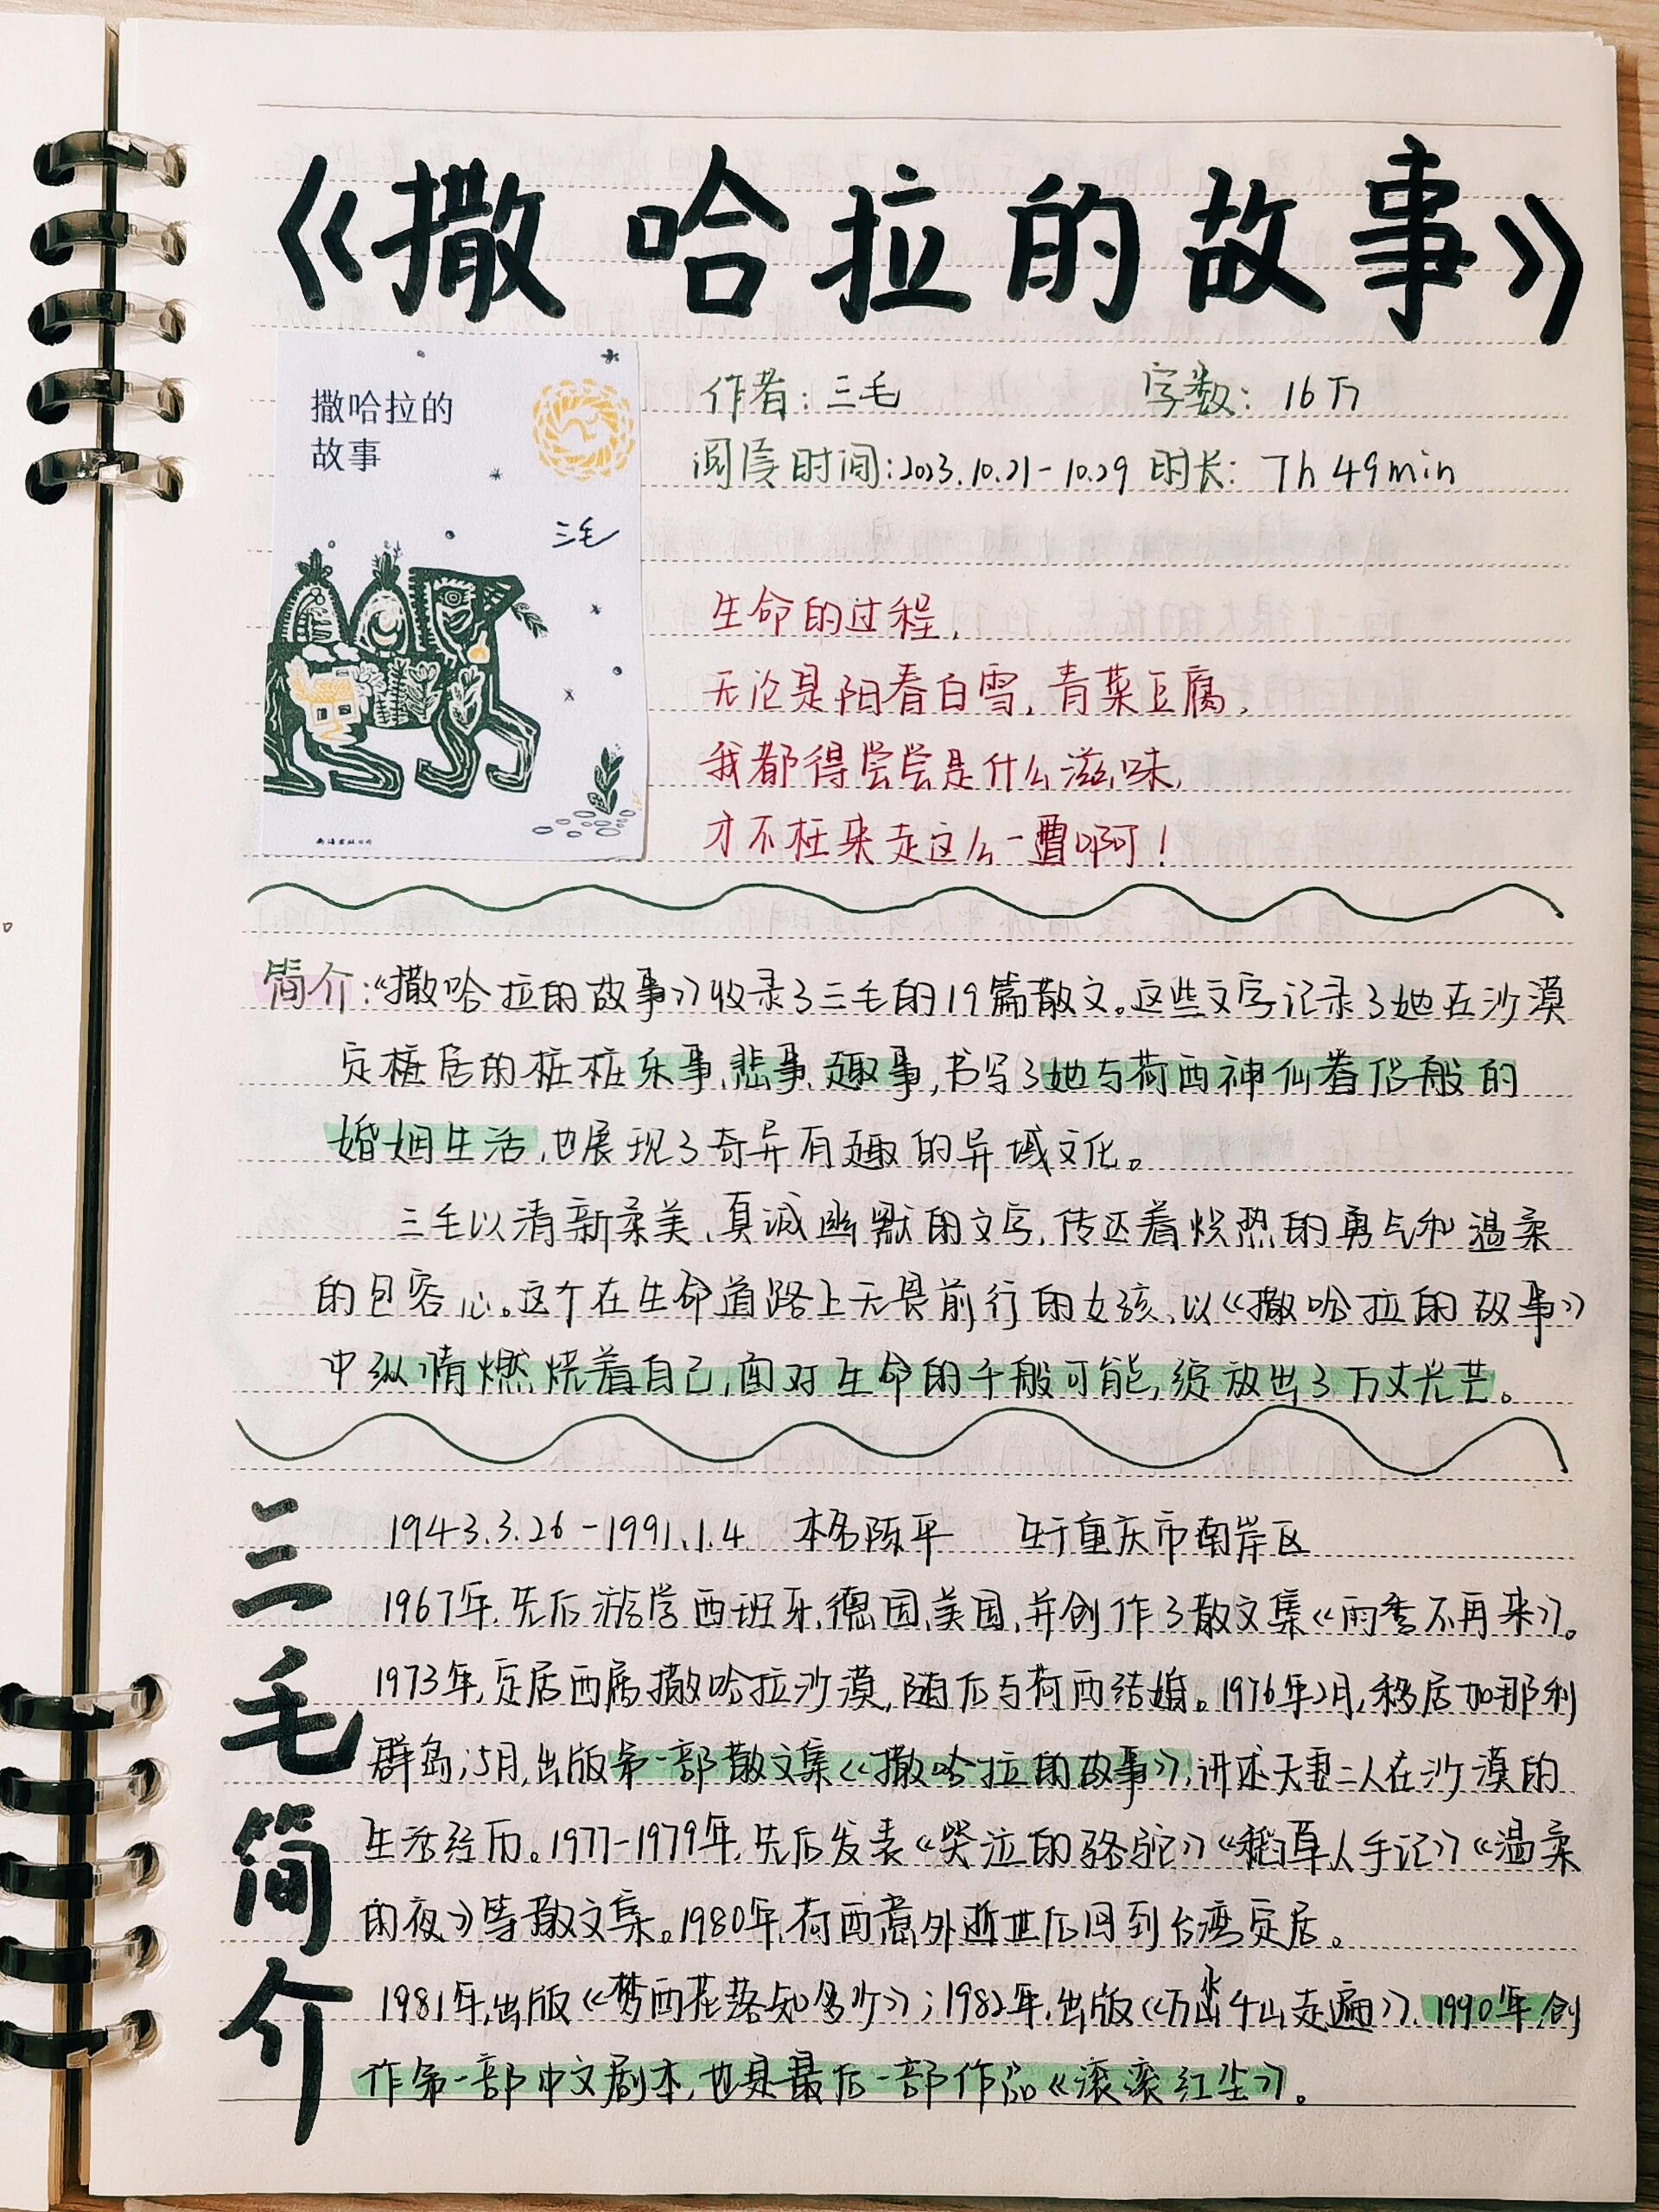 《撒哈拉的故事》
撒哈拉的
故事
三毛
南海出版公司
作者:三毛 字数: 16万
阅读时间:2023.10.21-10.29 时长: 7h 49min
生命的过程,
无论是阳春白雪,青菜豆腐,
我都得尝尝是什么滋味,
才不枉来走这么一遭啊!
简介:《撒哈拉的故事》收录了三毛的19篇散文。这些文字记录了她在沙漠
定桩居的桩桩乐事、悲事、趣事,书写了她与荷西神仙眷侣般的
婚姻生活,也展现了奇异有趣的异域文化。
三毛以清新柔美、真诚幽默的文字,传达着炽热的勇气和温柔
的包容心。这个在生命道路上无畏前行的女孩,以《撒哈拉的故事》
中纵情燃烧着自己,面对生命的千般可能,绽放出了万丈光芒。
三毛简介
1943.3.26-1991.1.4 本名陈平 生于重庆市南岸区
1967年,先后游学西班牙,德国,美国,并创作了散文集《雨季不再来》。
1973年,定居西属撒哈拉沙漠,随后与荷西结婚。1976年2月,移居加那利
群岛;5月,出版第一部散文集《撒哈拉的故事》,讲述夫妻二人在沙漠的
生活经历。1977-1979年,先后发表《哭泣的骆驼》《稻草人手记》《温柔
的夜》等散文集。1980年,荷西意外逝世后回到台湾定居。
1981年,出版《梦西花落知多少》;1982年,出版《万水千山走遍》,1990年,创
作第一部中文剧本,也是最后一部作品《滚滚红尘》。